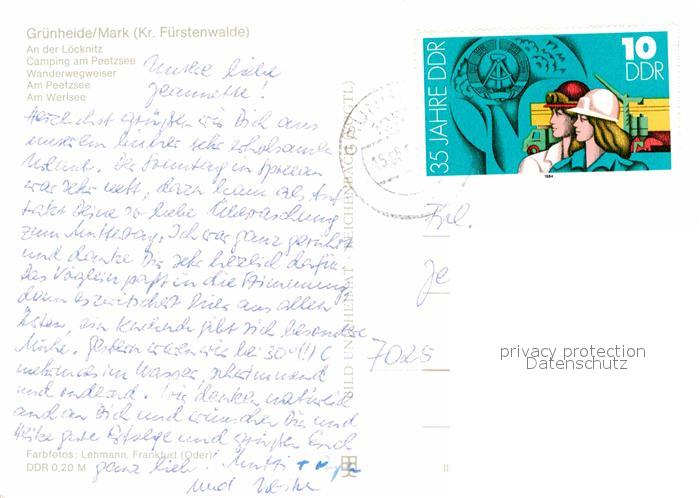 Grünheide/Mark (Kr. Fürstenwalde)
An der Löcknitz
Camping am Peetzsee
Wanderwegweiser
Am Peetzsee
Am Werlsee
Unsere liebe
Jeannette!
Herzlichst grüßen wir Dich aus
unserem bisher sehr erholsamen
Urlaub. Der Sonntag in
war sehr nett, dazu kam als Auf-
takt Deine so liebe Überraschung
zum Muttertag. Ich war ganz gerührt
und danke Dir sehr herzlich dafür.
Das Vöglein paßt in die Stimmung,
denn es zwitschert hier aus allen
Ästen, ein Kuckuck gibt sich besondere
Mühe. Gestern waren wir bei 30°(!) C
mehrmals im Wasser, schwimmend
und rudernd. Wir denken natürlich
auch an Dich und wünschen Dir und
Heike gute Erfolge und grüßen Euch
ganz lieb! Mutti +
und
Farbfotos: Lehmann, Frankfurt (Oder)
DDR 0,20 M
BILD UND HEIMAT REICHENBACH (VOGTL)
35 JAHRE DDR
10
DDR
1984
Frl.
Je
7025
privacy protection
Datenschutz
II